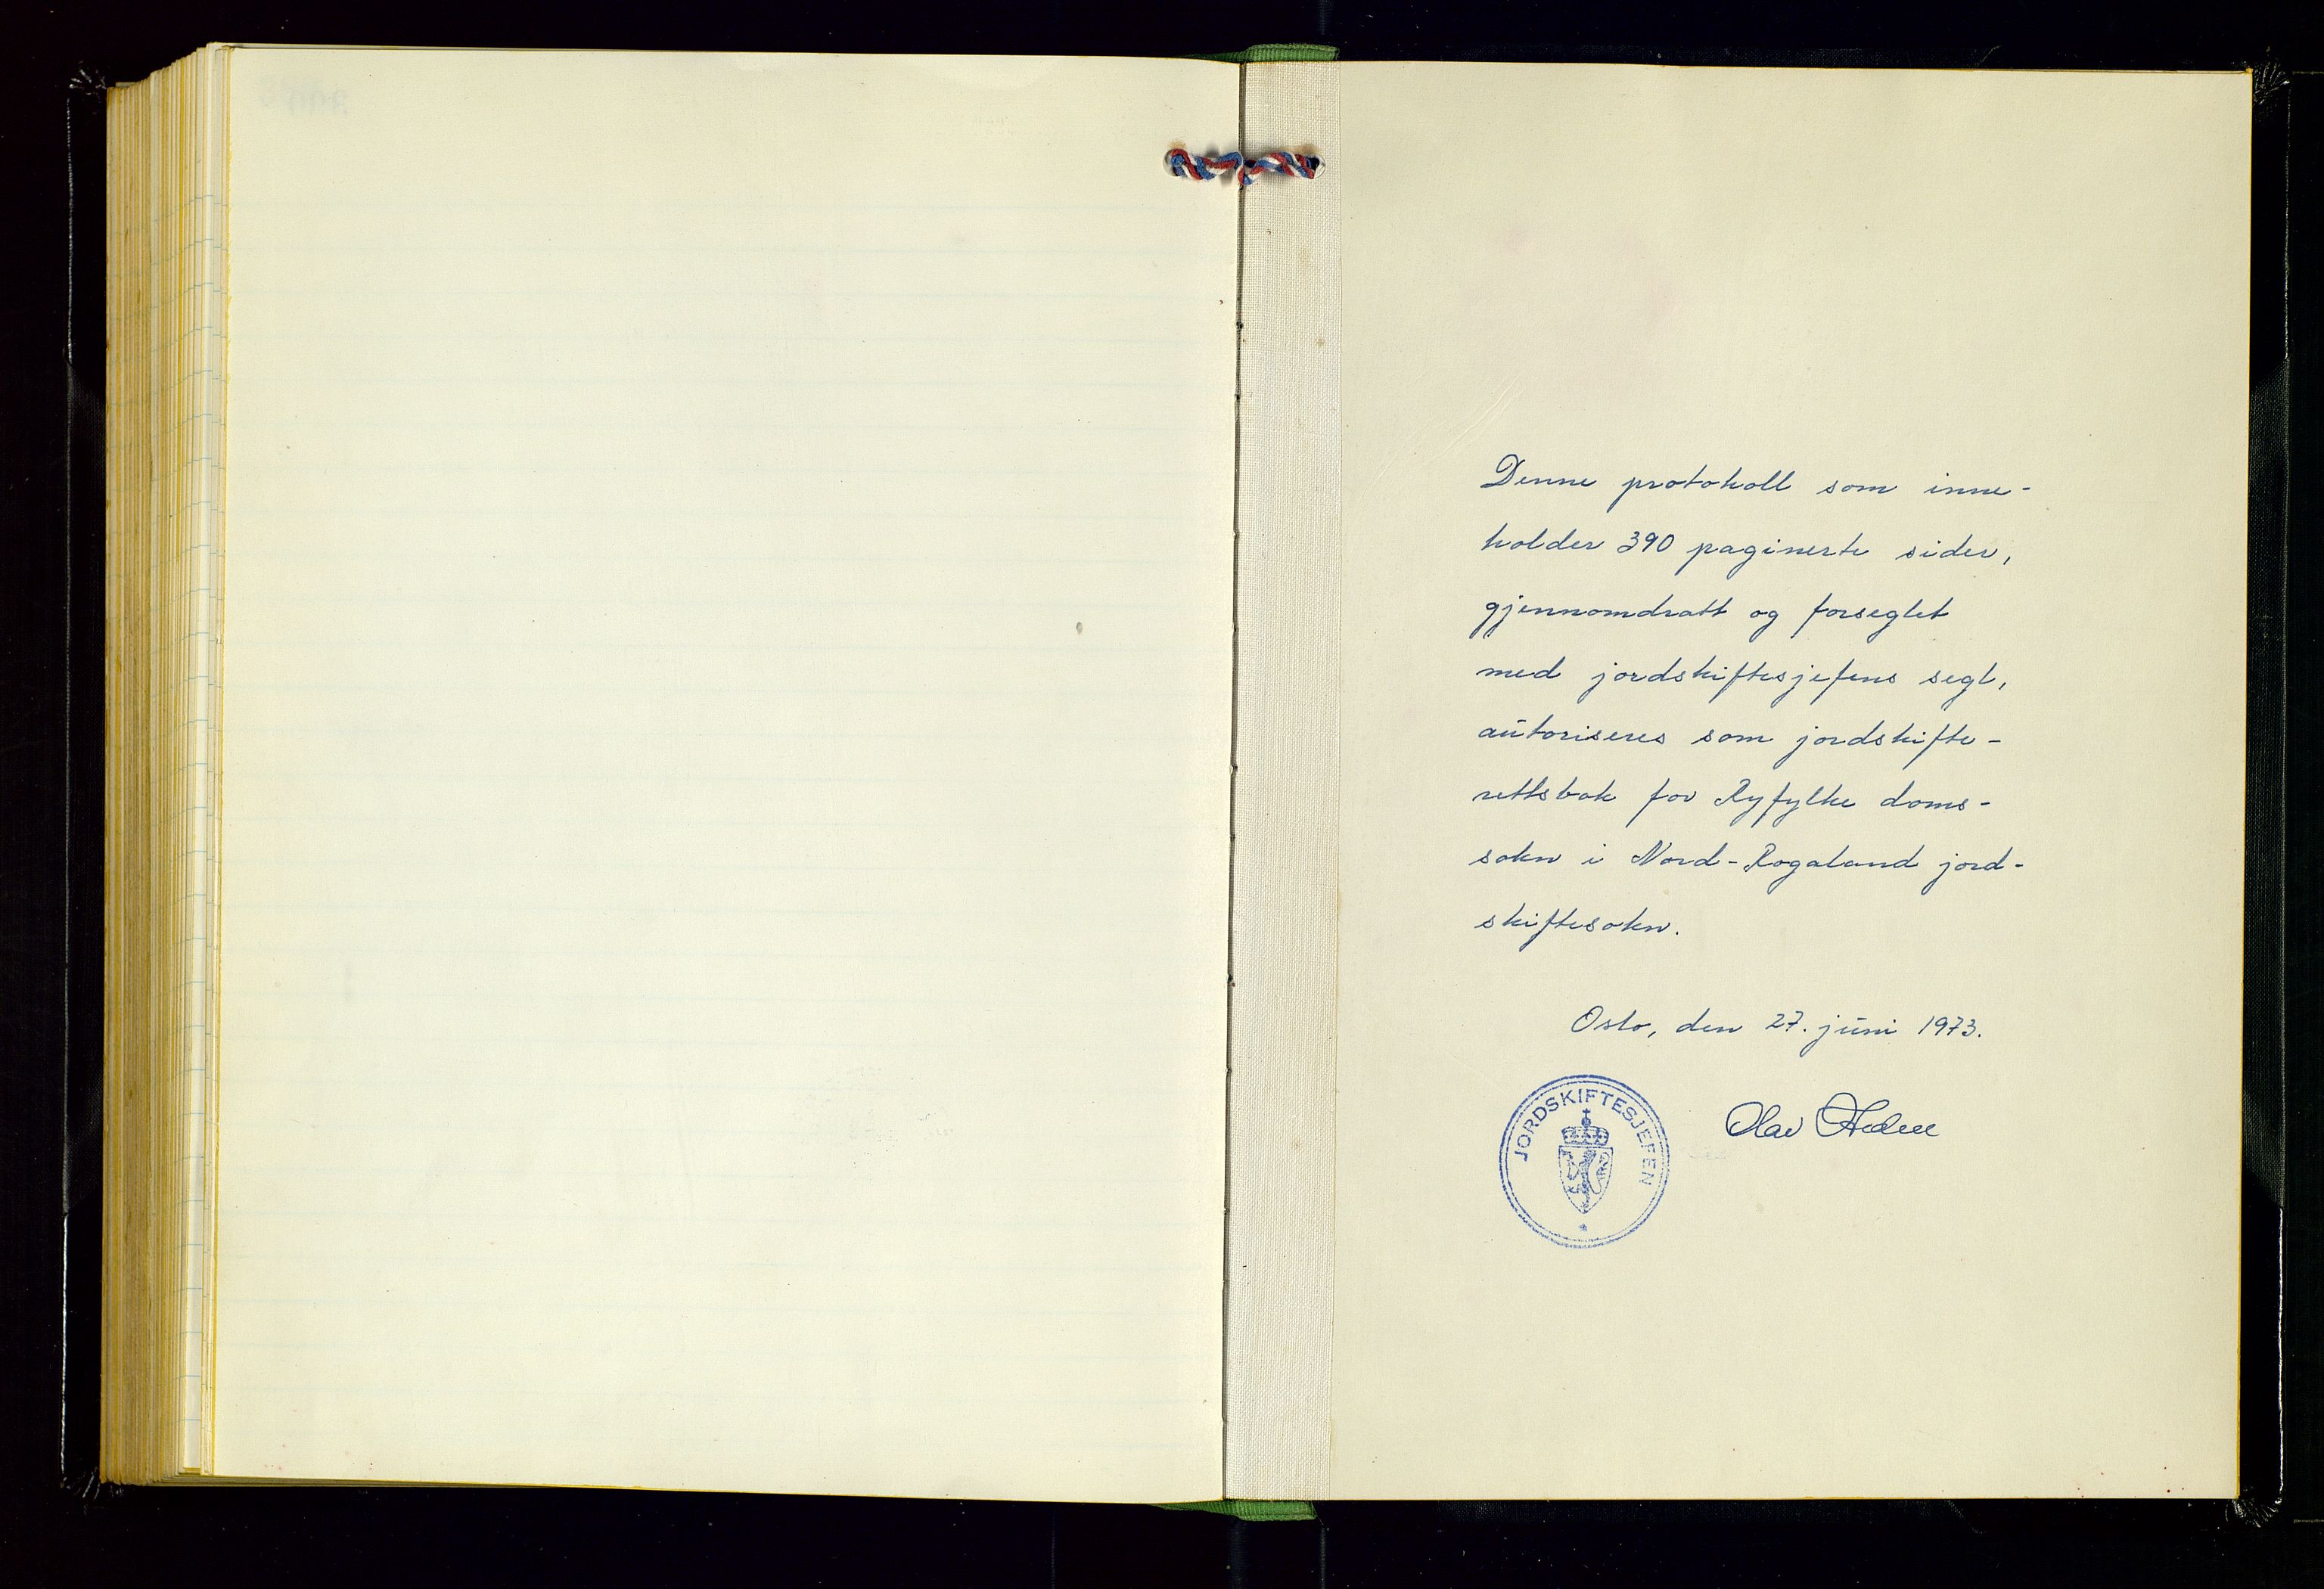 Denne protokoll som inne-
holder 390 paginerte sider,
gjennomdratt og forseglet
med jordskiftesjefens segl,
autoriseres som jordskifte-
rettsbok for Ryfylke doms-
sokn i Nord-Rogaland jord-
skiftesokn.
Oslo, den 27. juni 1973.
JORDSKIFTESJEFEN
Olav